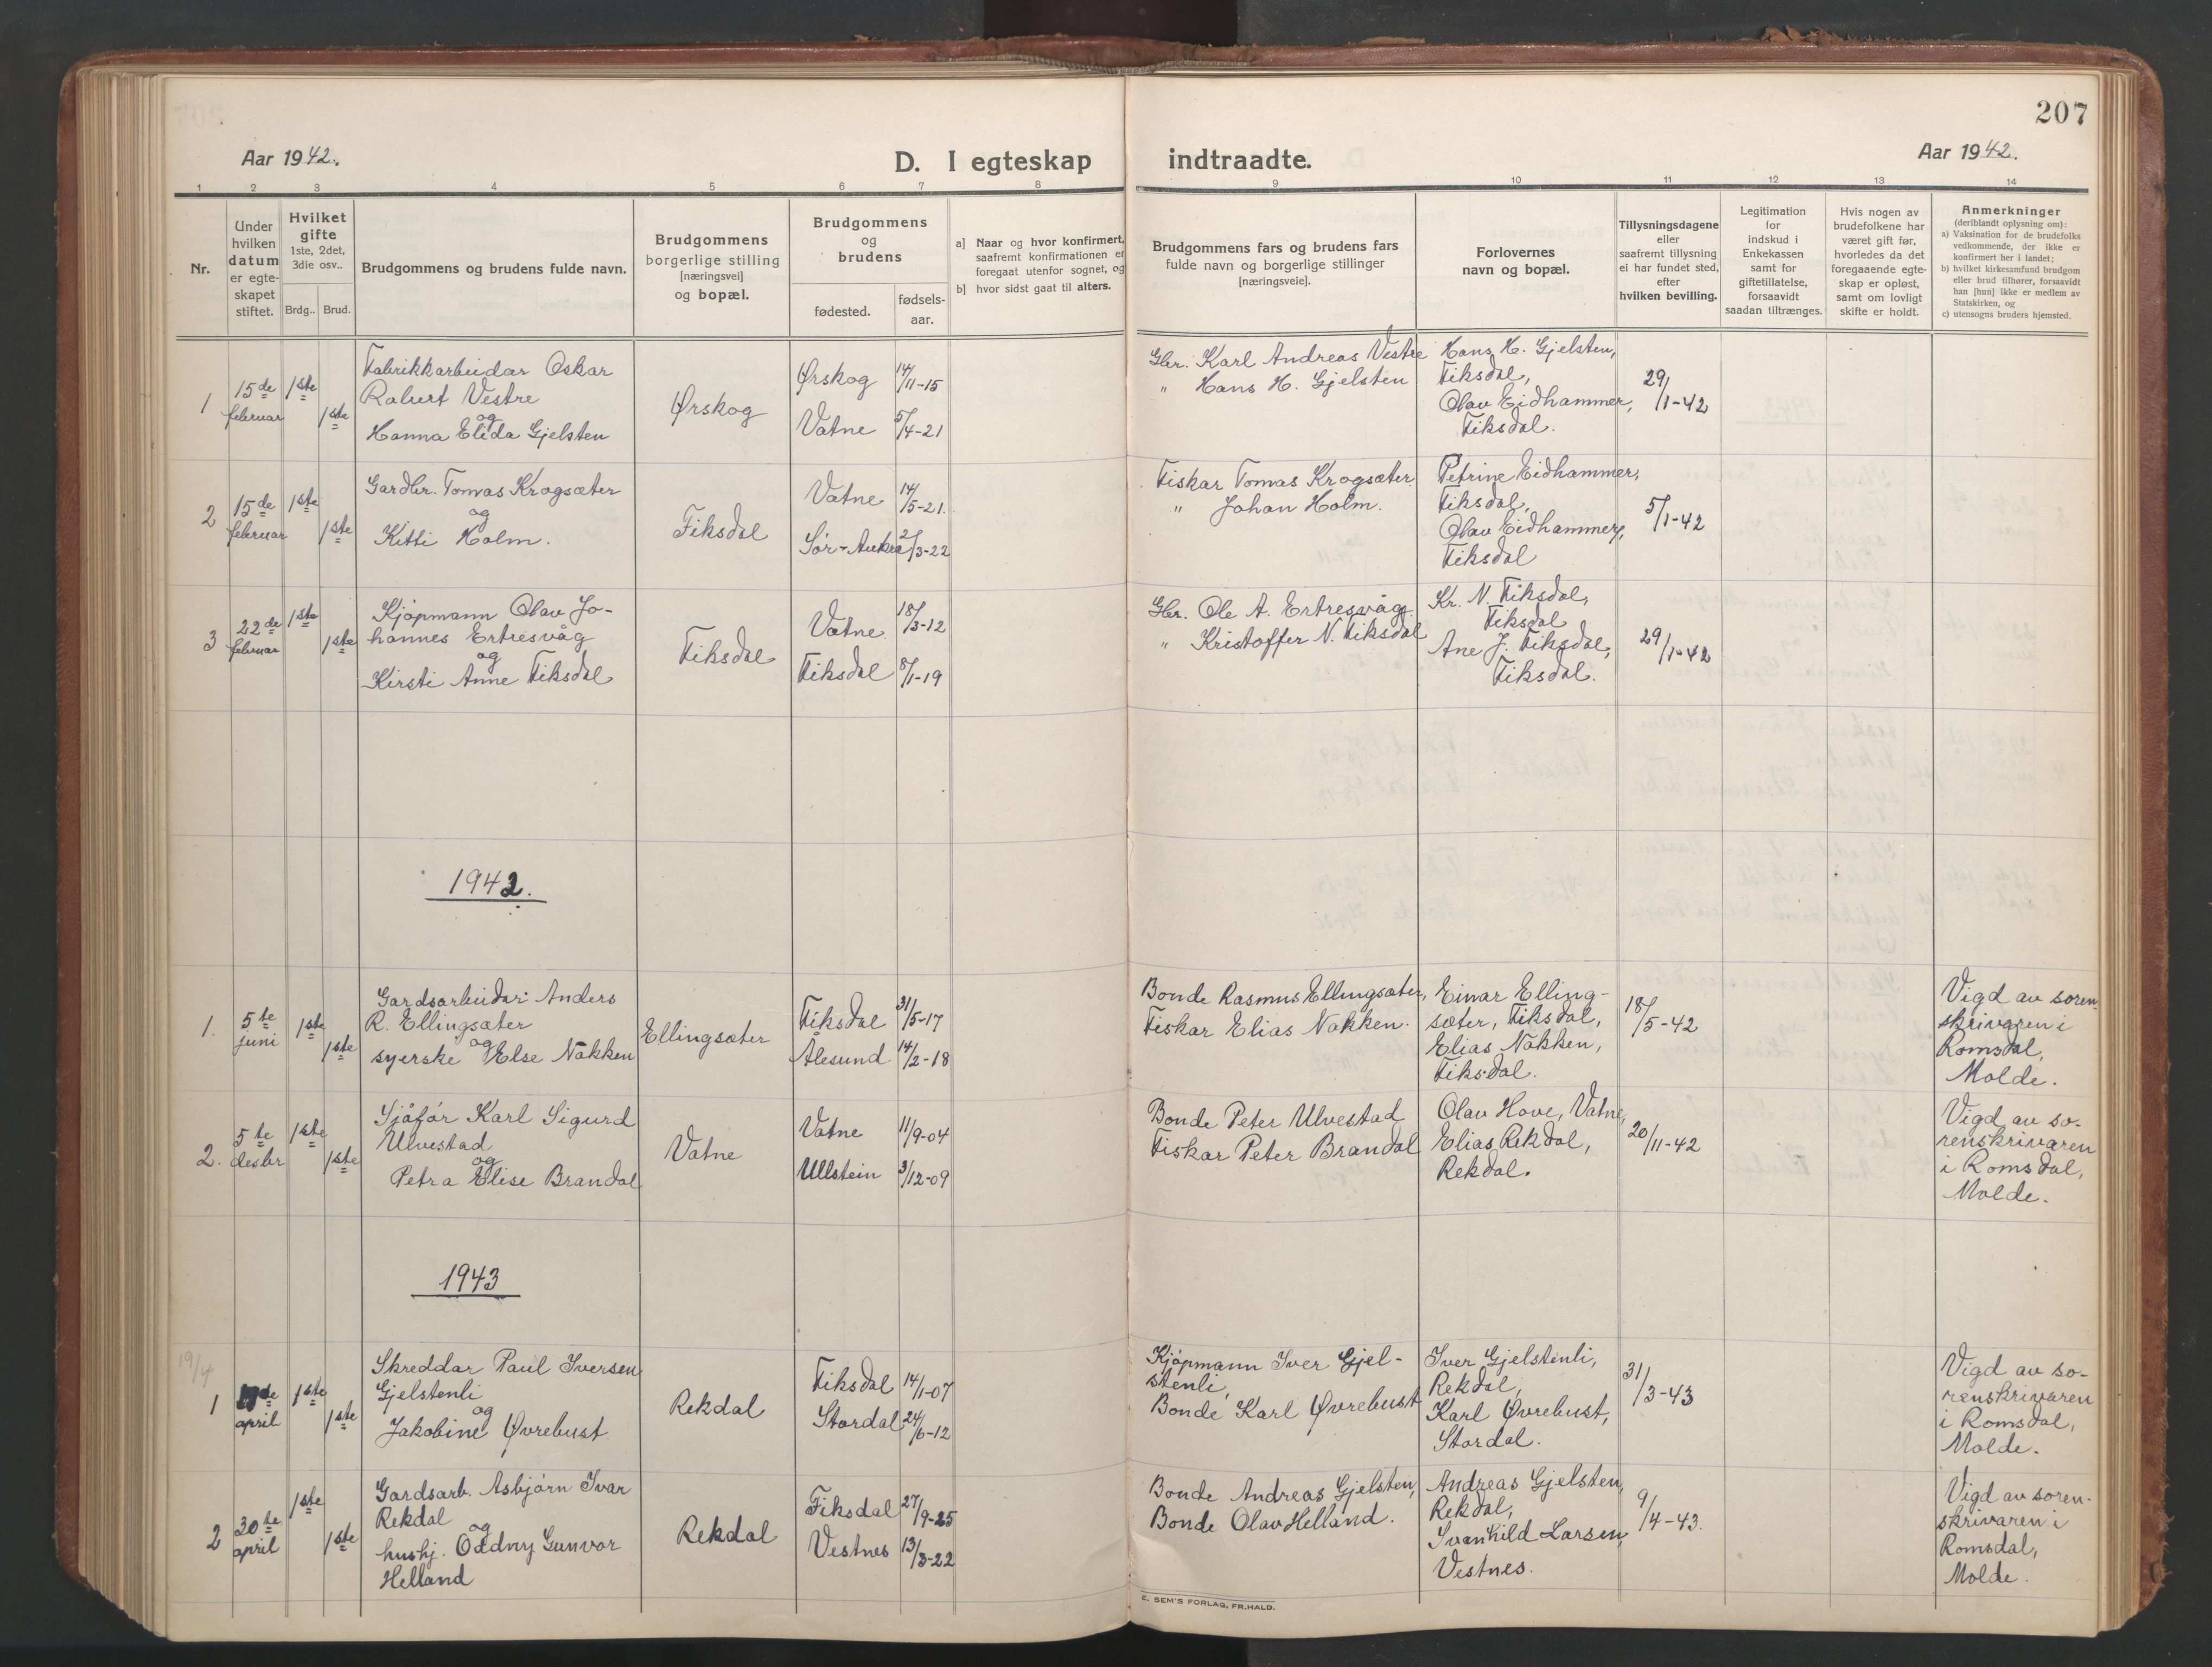 207
Aar 1942.
D. I egteskap indtraadte.
Aar 1942.
1 2 3 4 5 6 7 8 9 10 11 12 13 14
Nr.
Under
hvilken
datum
er egte-
skapet
stiftet.
Hvilket
gifte
1ste, 2det,
3die osv..
Brdg.. Brud.
Brudgommens og brudens fulde navn.
Brudgommens
borgerlige stilling
[næringsvei]
og bopæl.
Brudgommens
og
brudens
fødested.
fødsels-
aar.
a] Naar og hvor konfirmert,
saafremt konfirmationen er
foregaat utenfor sognet, og
b] hvor sidst gaat til alters.
Brudgommens fars og brudens fars
fulde navn og borgerlige stillinger
[næringsveie].
Forlovernes
navn og bopæl.
Tillysningsdagene
eller
saafremt tillysning
ei har fundet sted,
efter
hvilken bevilling.
Legitimation
for
indskud i
Enkekassen
samt for
giftetillatelse,
forsaavidt
saadan tiltrænges.
Hvis nogen av
brudefolkene har
været gift før,
hvorledes da det
foregaaende egte-
skap er opløst,
samt om lovligt
skifte er holdt.
Anmerkninger
(deriblandt oplysning om):
a) Vaksination for de brudefolks
vedkommende, der ikke er
konfirmert her i landet;
b) hvilket kirkesamfund brudgom
eller brud tilhører, forsaavidt
han [hun] ikke er medlem av
Statskirken, og
c) utensogns bruders hjemsted.
1
15de
februar
1ste
1ste
Fabrikkarbeidar Oskar
Robert Vestre
og
Hanna Elida Gjelsten
Ørskog
Ørskog
Vatne
14/11-15
5/4-21
Gbr. Karl Andreas Vestre
" Hans H. Gjelsten
Hans H. Gjelsten,
Fiksdal,
Olav Eidhammer,
Fiksdal.
29/1-42
2
15de
februar
1ste
1ste
Gardbr. Tomas Krogsæter
og
Kitti Holm.
Fiksdal
Vatne
Sør-Aukra
14/5-21.
2/3-22
Fiskar Tomas Krogsæter.
" Johan Holm.
Petrine Eidhammer,
Fiksdal,
Olav Eidhammer,
Fiksdal
5/1-42
3
22de
februar
1ste
1ste
Kjøpmann Olav Jo-
hannes Ertresvåg
og
Kirsti Anne Fiksdal
Fiksdal
Vatne
Fiksdal
18/3-12
8/1-19
Gbr. Ole A. Ertresvåg.
" Kristoffer N. Fiksdal
Kr. N. Fiksdal,
Fiksdal
Ane J. Fiksdal,
Fiksdal.
29/1-42
1942.
1.
5te
juni
1ste
1ste
Gardsarbeidar Anders
R. Ellingsæter
og
syerske Else Nakken
Ellingsæter
Fiksdal
Ålesund
31/5-17
14/2-18
Bonde Rasmus Ellingsæter,
Fiskar Elias Nakken.
Einar Elling-
sæter, Fiksdal,
Elias Nakken,
Fiksdal.
18/5-42
Vigd av soren-
skrivaren i
Romsdal,
Molde.
2.
5te
desbr
1ste
1ste
Sjåfør Karl Sigurd
Ulvestad
og
Petra Elise Brandal
Vatne
Vatne
Ullstein
11/9-04
3/12-09
Bonde Peter Ulvestad
Fiskar Peter Brandal
Olav Hove, Vatne,
Elias Rekdal,
Rekdal.
20/11-42
Vigd av so-
renskrivaren
i Romsdal,
Molde.
1943
19/4
1
april
1ste
1ste
Skreddar Paul Iversen
Gjelstenli
og
Jakobine Øvrebust
Rekdal
Fiksdal
Stordal
14/1-07
24/6-12
Kjøpmann Iver Gjel-
stenli,
Bonde Karl Øvrebust
Iver Gjelstenli,
Rekdal,
Karl Øvrebust,
Stordal.
31/3-43
Vigd av so-
renskrivaren
i Romsdal,
Molde.
2
30te
april
1ste
1ste
Gardsarb. Asbjørn Ivar
Rekdal
og
hushj. Oddny Gunvor
Helland
Rekdal
Fiksdal
Vestnes
27/9-25
13/3-22
Bonde Andreas Gjelsten,
Bonde Olav Helland.
Andreas Gjelsten,
Rekdal,
Svanhild Larsen,
Vestnes.
9/4-43.
Vigd av soren-
skrivaren i
Romsdal,
Molde.
E. SEM'S FORLAG, FR.HALD.